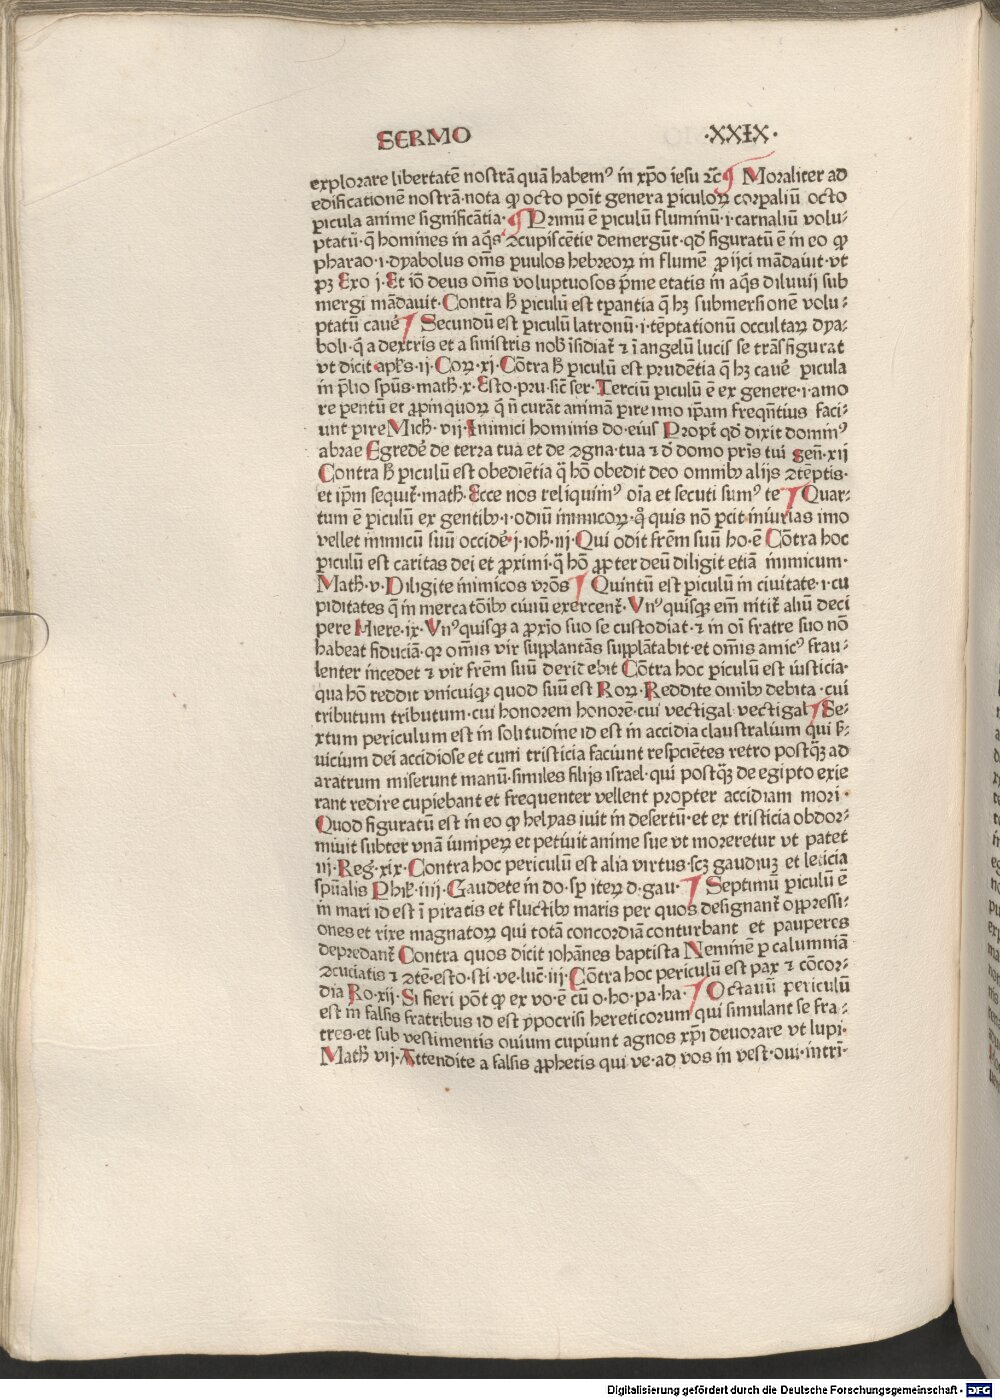 SERMO ·XXIX·
explorare libertatē nostrā quā habemꝰ in xp̄o iesu ⁊c̄ Moraliter ad
edificationē nostrā·nota ꝙ octo poīt genera ꝑiculoꝝ corꝑaliū octo
ꝑicula anime significātia· Primū ē ꝑiculū fluminū·i·carnaliū volu-
ptatū·q̄ homines in aq̄s ꝯcupiscētie demergūt·qd̓ figuratū ē in eo ꝙ
pharao·i·dyabolus om̄s ꝑuulos hebreoꝝ in flumē ꝓijci mādauit·vt
pꝫ Exo j·Et iō deus om̄s voluptuosos p̄me etatis in aq̄s diluuij sub
mergi mādauit·Contra h̓ ꝑiculū est tꝑantia q̄ hꝫ submersionē volu-
ptatū cauē Secundū est ꝑiculū latronū·i·tēptationū occultaꝝ dya-
boli·q̄ a dextris et a sinistris nob̓ īsidiat̄ ⁊ ī angelū lucis se trāsfigurat
vt dicit apl̄s·ij·Coꝝ·xj·Cōtra h̓ ꝑiculū est prudētia q̄ hꝫ cauē ꝑicula
in p̄lio spūs·math̓·x·Esto·pru·sic̄ ser·Terciū ꝑiculū ē ex genere·i·amo
re pentū et ꝓpinquoꝝ q̄ n̄ curāt animā ꝑire imo ip̄am freqn̄tius faci-
unt ꝑire Mich̓·vij·Inimici hominis do·eius Propt̄ qd̓ dixit domin̄ꝰ
abrae Egredē de terra tua et de ꝯgna·tua ⁊ d̓ domo pr̄is tui gen̄·xij
Contra h̓ ꝑiculū est obediētia q̄ hō obedit deo omnibꝰ alijs ꝯtēptis·
et ip̄m sequit̄·math̓·Ecce nos reliquimꝰ oīa et secuti sumꝰ te Quar-
tum ē ꝑiculū ex gentibꝰ·i·odiū inimicoꝝ·qͦ quis nō ꝑcit iniurias imo
vellet inimicū suū occidē·j·ioh̓·iij·Qui odit frēm suū ho·ē Cōtra hoc
ꝑiculū est caritas dei et ꝓximi·q̄ hō ꝓpter deū diligit etiā inimicum·
Math̓·v·Diligite inimicos vr̄os Quintū est ꝑiculū in ciuitate·i·cu
piditates q̄ in mercatōibꝰ ciuiū exercent̄·Vnꝰquisqꝫ em̄ nitit̄ aliū deci
pere Hiere·ix·Vnꝰquisqꝫ a ꝓxīo suo se custodiat·⁊ in oī fratre suo nō
habeat fiduciā·qꝛ om̄is vir supplantās supplātabit·et om̄is amicꝰ frau-
lenter incedet ⁊ vir frēm suū deridebit Cōtra hoc ꝑiculū est iusticia·
qua hō reddit vnicuiqꝫ quod suū est Roꝝ·Reddite om̄ibꝰ debita·cui
tributum tributum·cui honorem honorē·cui vectigal·vectigal Se-
xtum periculum est in solitudine id est in accidia claustralium qui s̓-
uicium dei accidiose et cum tristicia faciunt respciētes retro postq̄ꝫ ad
aratrum miserunt manū·similes filijs israel·qui postq̄ꝫ de egipto exie
rant redire cupiebant et frequenter vellent propter accidiam mori·
Quod figuratū est in eo ꝙ helyas iuit in desertū·et ex tristicia obdor-
miuit subter vnā iuniperū et petiuit anime sue vt moreretur vt patet
iij·Reg̓·xix·Contra hoc periculū est alia virtus·scꝫ gaudiuꝫ et leticia
spūalis Phil̓·iiij·Gaudete in do·sp iteꝝ d·gau· Septimū ꝑiculū ē
in mari id est ī piratis et fluctibꝰ maris per quos designant̄ oppressi-
ones et rixe magnatoꝝ qui totā concordiā conturbant et pauperes
depredant̄ Contra quos dicit iohānes baptista Neminē ꝑ calumniā
ꝯcuciatis ⁊ ꝯtē·esto·sti·ve·luc̄·iij·Cōtra hoc periculū est pax ⁊ cōcor-
dia Ro·xij·Si fieri pōt ꝙ ex vo·ē cū o·ho·pa·ha· Octauū periculū
est in falsis fratribus id est ypocrisi hereticorum qui simulant se fra-
tres·et sub vestimentis ouium cupiunt agnos xp̄i deuorare vt lupi·
Math̓ vij·Attendite a falsis ꝓphetis qui ve·ad vos in vest·oui·intrī·
Digitalisierung gefördert durch die Deutsche Forschungsgemeinschaft - DFG